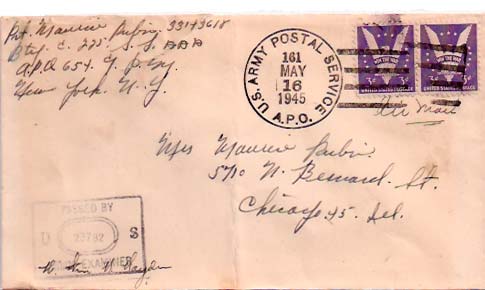 Pvt. Maurice Rubin 33173618
Btry. C. 225 S. L. BN
A.P.O. 654
New York. N.Y.
U.S. ARMY POSTAL SERVICE
161
MAY
16
1945
A.P.O.
WIN THE WAR
WIN THE WAR
UNITED STATES POSTAGE
3¢
Air Mail
Mrs Maurice Rubin
N. Bernard St.
Chicago 45. Ill.
PASSED BY
U S
23792
ARMY EXAMINER